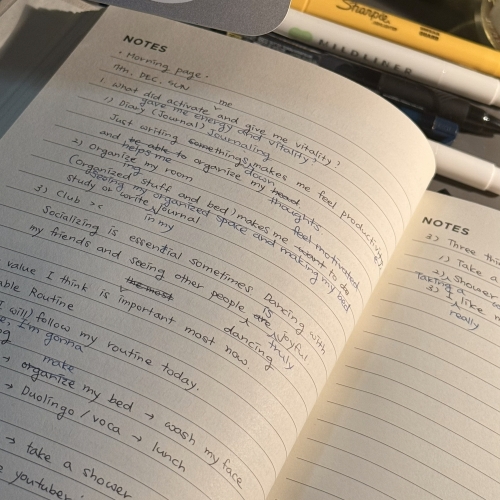 Sharpie
MILDLINER
NOTES
· Morning page ·
11th. DEC. SUN
1. What did activate me and give me vitality?
gave me energy and vitality?
1) Diary (Journal) Journaling
Just writing somethings down makes me feel productivity
and be able to organize my head
helps me thoughts
2) Organize my room
(Organized stuff and bed) makes me want to do
ing feel motivated
seeing my organized space and making my bed
study or write journal
in my
3) Club ><
Socializing is essential sometimes. Dancing with
my friends and seeing other people are joyful
is truly
dancing
value I think is important most now
the most
able Routine
I will) follow my routine today.
I'm gonna
→ organize my bed → wash my face
make
→ Duolingo / voca → lunch
→ take a shower
youtuber
NOTES
3) Three thi
1) Take a
2) Shower
Taking a
3) I like m
really